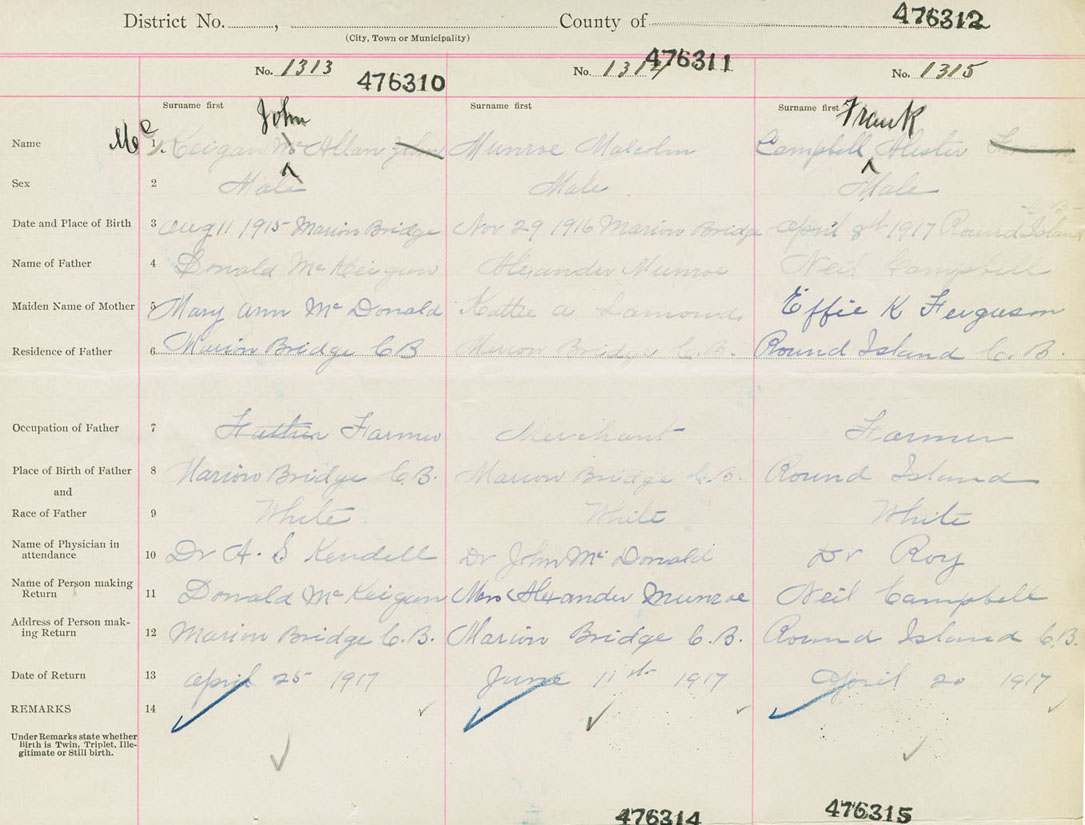 District No. , County of 476312
(City, Town or Municipality)
No. 1313 476310 No. 1314 476311 No. 1315
Surname first John Surname first Surname first Frank
Name Mc 1 Keigan Mc Allan John Munroe Malcolm Campbell Alister
Sex 2 Male Male Male
C.B.
Date and Place of Birth 3 Aug 11 1915 Marion Bridge Nov 29 1916 Marion Bridge April 8th 1917 Round Island
Name of Father 4 Donald McKeigan Alexander Munroe Neil Campbell
Maiden Name of Mother 5 Mary Ann McDonald Kattie A Lamond Effie K Ferguson
Residence of Father 6 Marion Bridge C B Marion Bridge C.B. Round Island C.B.
Occupation of Father 7 Farmer Merchant Farmer
Place of Birth of Father 8 Marion Bridge C.B. Marion Bridge C.B. Round Island
and
Race of Father 9 White White White
Name of Physician in
attendance 10 Dr A. S Kendell Dr John McDonald Dr Roy
Name of Person making
Return 11 Donald McKeigan Mrs Alexander Munroe Neil Campbell
Address of Person mak-
ing Return 12 Marion Bridge C.B. Marion Bridge C.B. Round Island C.B.
Date of Return 13 April 25 1917 June 11th 1917 April 20 1917
REMARKS 14
Under Remarks state whether
Birth is Twin, Triplet, Ille-
gitimate or Still birth.
476314 476315